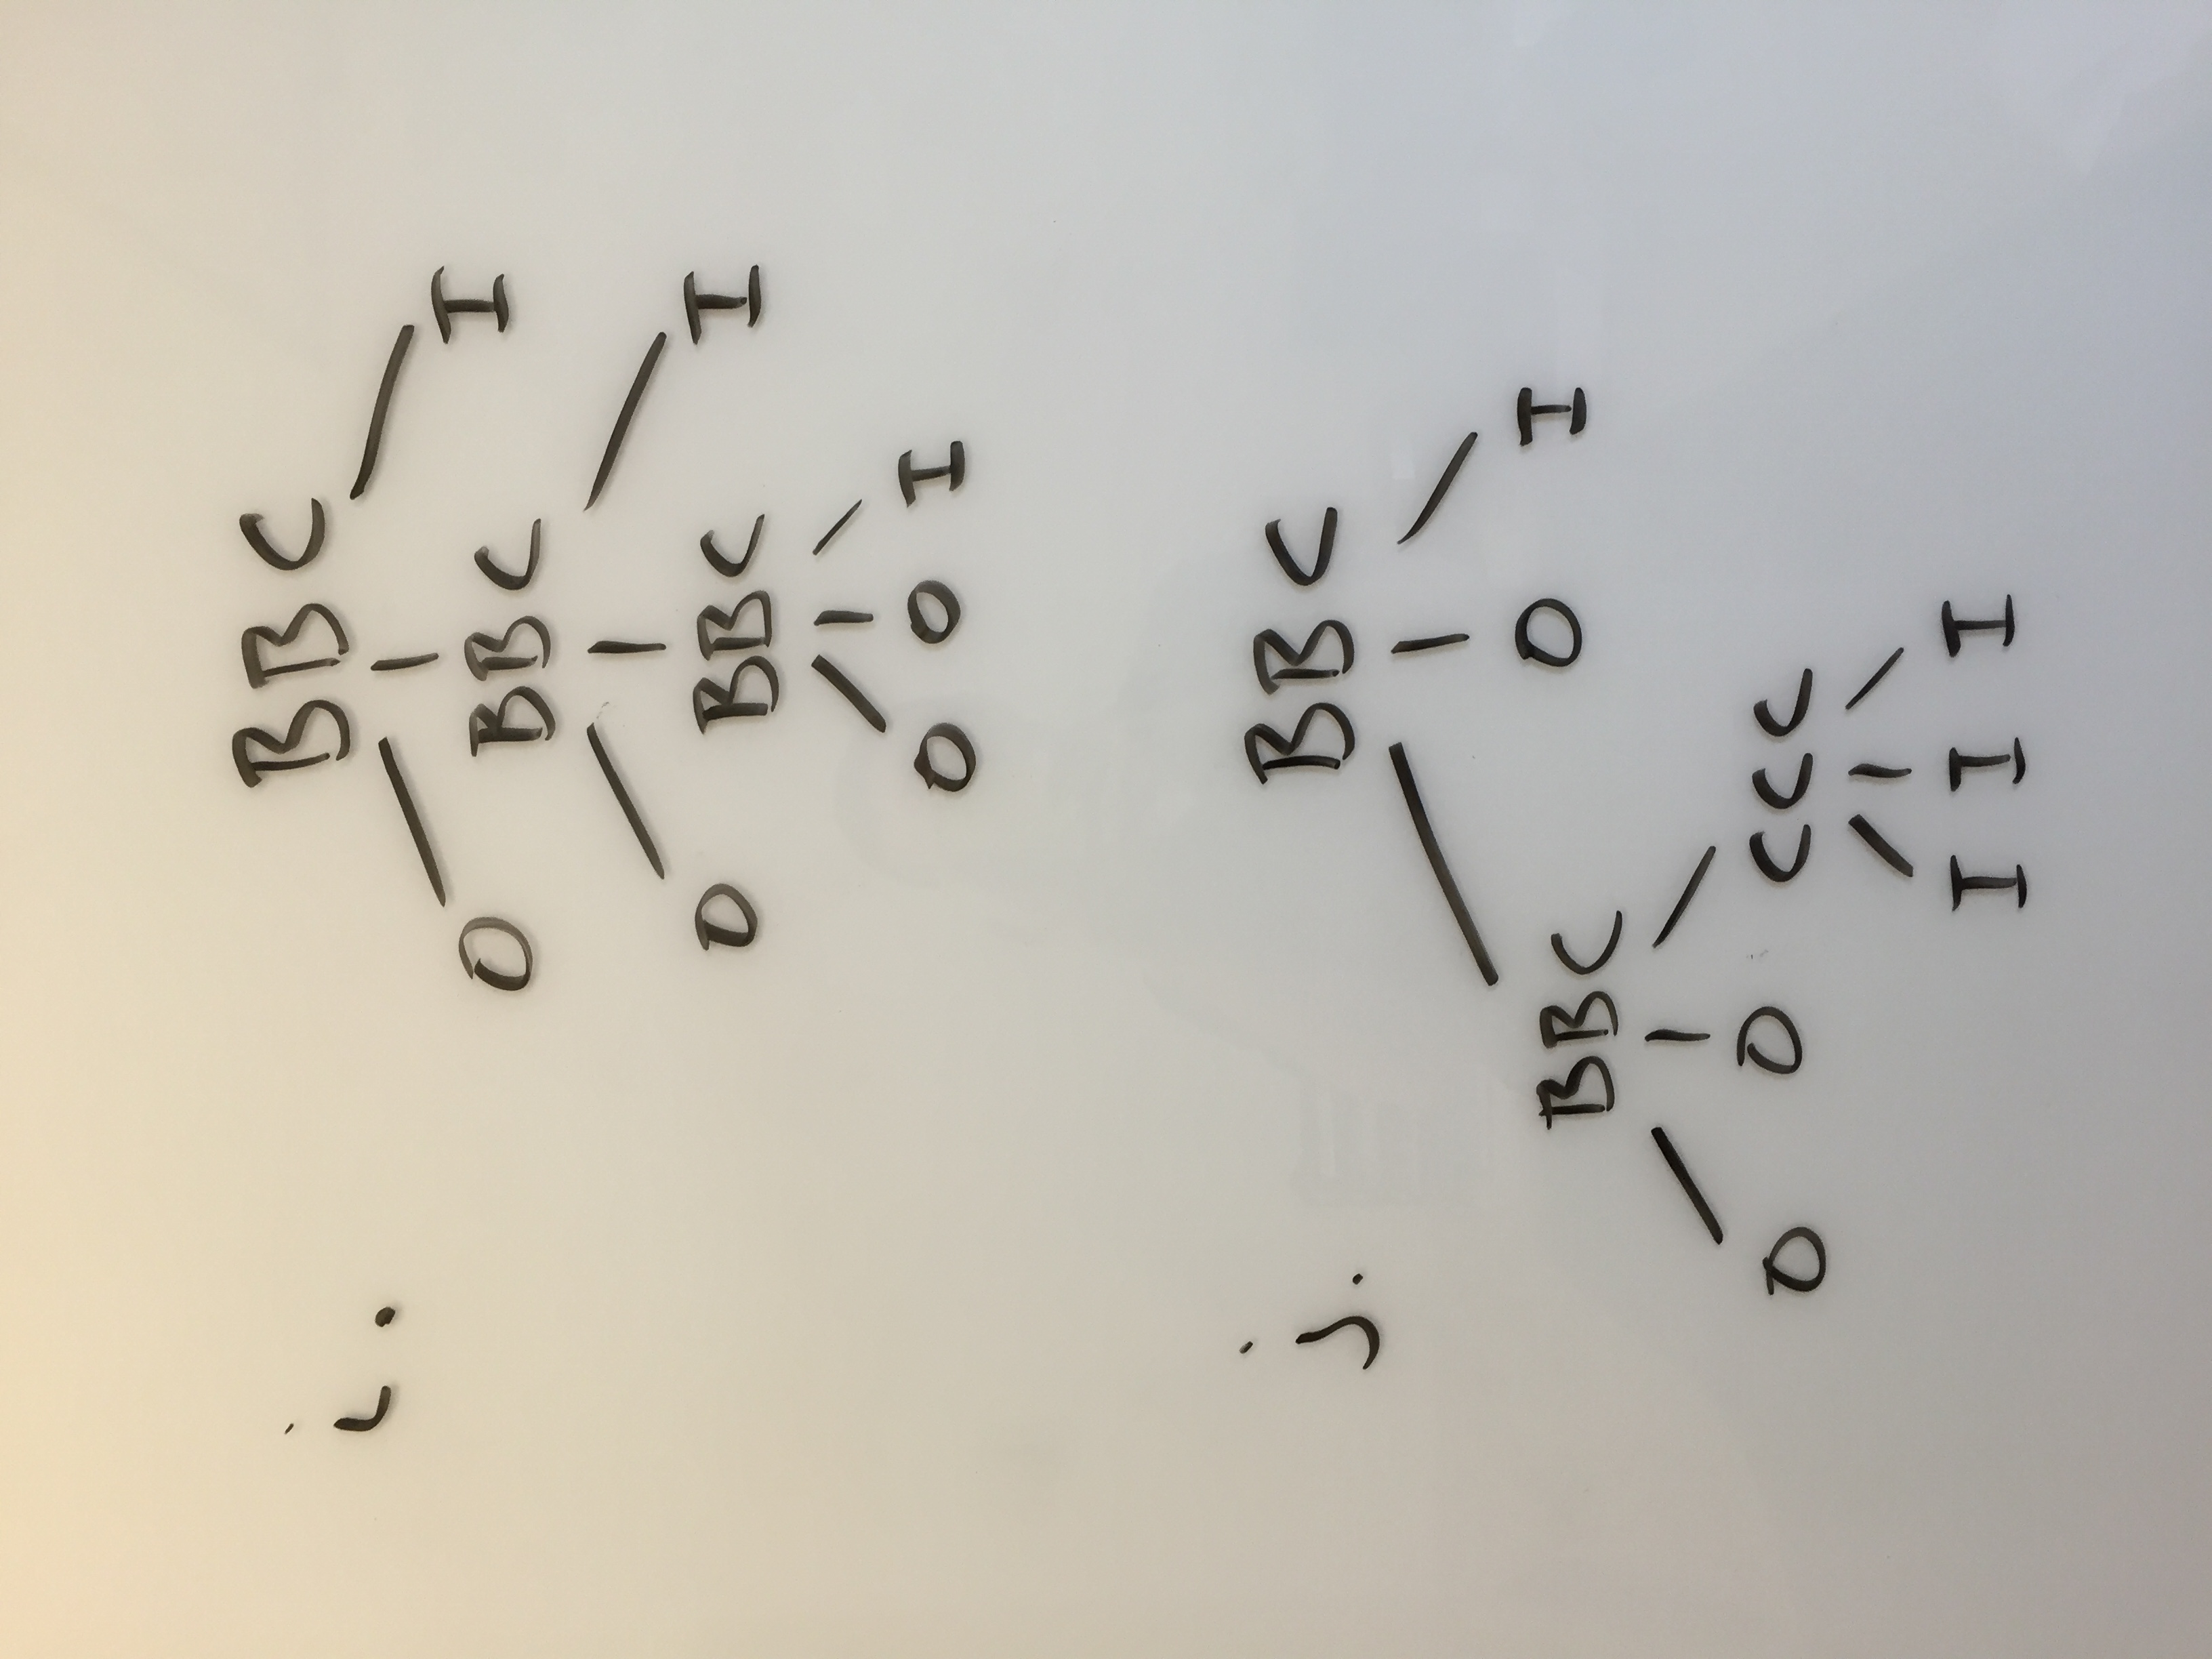 i. BBC
O BBC I
O BBC I
O O I
j. BBC
BBC O I
O O CCC
I I I